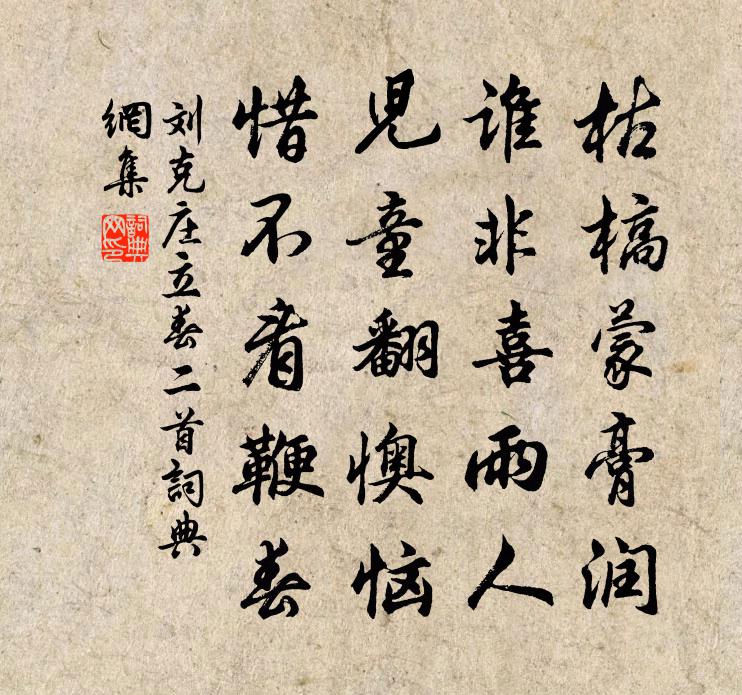 枯槁蒙膏润
谁非喜雨人
児童翻懊恼
惜不看鞭春
刘克庄立春二首詞典
網集
詞典網印